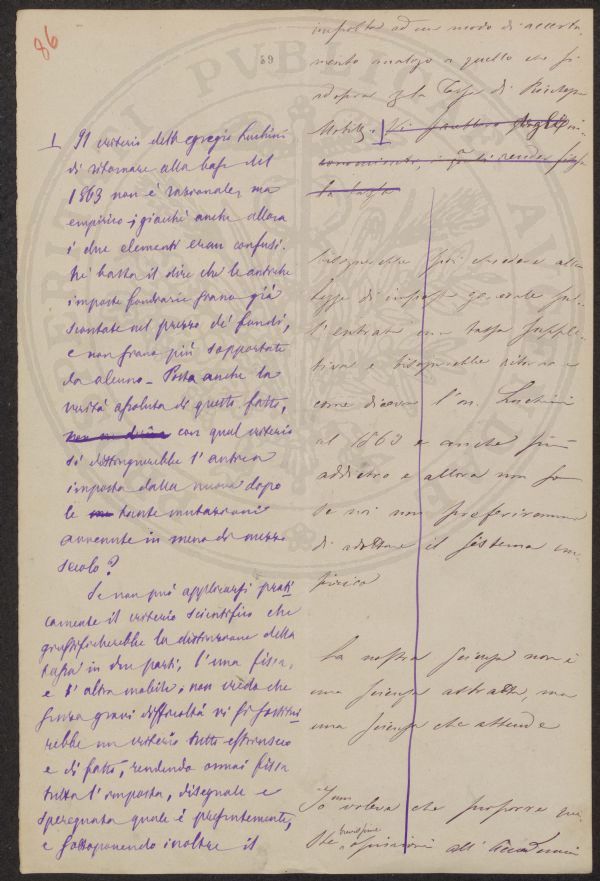 86
59
⊥ Il criterio dell'egregio Luchini
di ritornare alla base del
1863 non è razionale, ma
empirico; giacché anche allora
i due elementi eran confusi.
Né basta il dire che le antiche
imposte fondiarie siano già
scontate nel prezzo de' fondi,
e non siano più sopportate
da alcuno. Posta anche la
verità assoluta di questo fatto,
con qual criterio
si distinguerebbe l'antica
imposta dalla nuova dopo
le tante mutazioni
avvenute in meno di mezzo
secolo?
Se non può applicarsi prati
camente il criterio scientifico che
giustificherebbe la distinzione della
tassa in due parti, l'una fissa,
e l'altra mobile, non credo che
senza gravi difficoltà vi si sostitui
rebbe un criterio tutto estrinseco
e di fatto, rendendo ormai fissa
tutta l'imposta, diseguale e
sperequata quale è presentemente,
e sottoponendo inoltre il
ad un modo di accerta-
mento analogo a quello che si
adopera la Tassa di Ricchezza
Mobile. ⊥
Bisognerebbe chiedere alla
legge di imposta generale sul-
l'entrata una tassa supple-
tiva e bisognerebbe ritornare
come diceva l'on. Luchini
al 1863 e anche più
addietro e allora non so
se noi non preferiremmo
di adottare il sistema em-
pirico
La nostra scienza non è
una scienza astratta, ma
una scienza che attende
Io non voleva che proporre que
ste brevissime opinioni all'Accademia